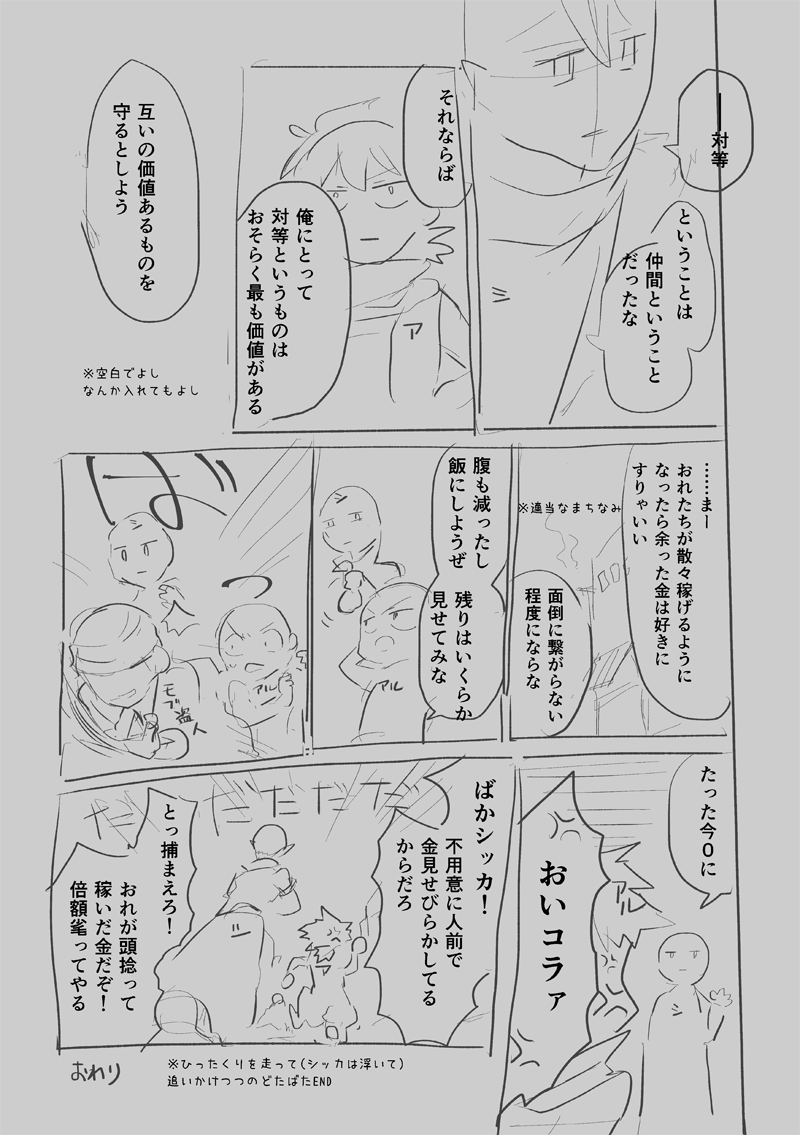 ―対等
ということは
仲間ということ
だったな
シ
それならば
俺にとって
対等というものは
おそらく最も価値がある
ア
互いの価値あるものを
守るとしよう
※空白でよし
なんか入れてもよし
……まー
おれたちが散々稼げるように
なったら余った金は好きに
すりゃいい
※適当なまちなみ
面倒に繋がらない
程度にならな
腹も減ったし
飯にしようぜ
残りはいくらか
見せてみな
アル
ばっ
アル
モブ盗人
たった今0に
シ
アル
おいコラァ
ばかシッカ!
不用意に人前で
金見せびらかしてる
からだろ
だだだだだ
ア
シ
とっ捕まえろ!
おれが頭捻って
稼いだ金だぞ!
倍額毟ってやる
※ひったくりを走って(シッカは浮いて)
追いかけつつのどたばたEND
おわり